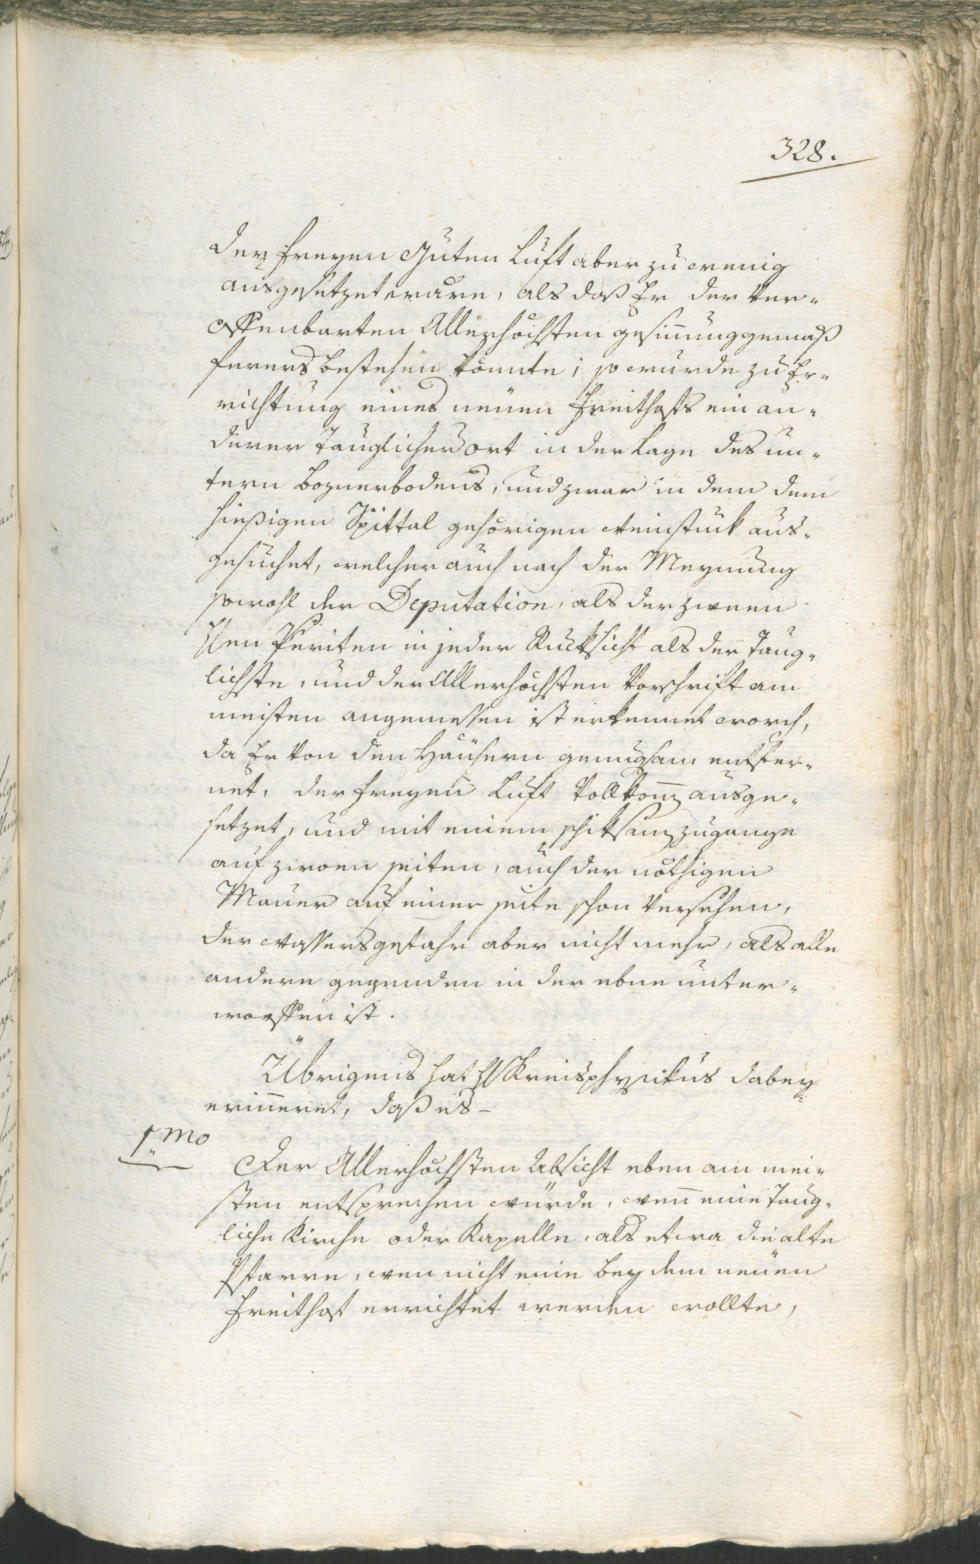 328.
der freyen Guten Luft aber zu wenig
ausgesetzet wäre, als daß Er der ver-
offenbarten Allerhöchsten gesinnung gemäß
ferers bestehen könnte; so wurde zu Er-
richtung eines neüen Freithofs ein an-
derer tauglicher Ort in der Lage des un-
tern Boznerbodens, und zwar in dem dem
hießigen Spittal gehörigen Weinstuck aus-
gesuchet, welcher auch nach der Meynung
sowohl der Deputation, als der zween
Hen Periten in jeder Rucksicht als der Taug-
lichste, und der Allerhöchsten Vorschrift am
meisten angemessen ist erkennet word,
da Er von den Häusern genugsam entfer-
net, der freyen Luft vollkom ausge-
setzet, und mit einem schiksamen zugange
auf zwoen seiten, auch der nöthigen
Mauer auf einer seite schon versehen,
der wassersgefahr aber nicht mehr, als alle
andere gegenden in der ebne unter-
worffen ist.
Übrigens hat H Kreisphysikus dabey
erinneret, daß es –
1mo
Der Allerhöchsten Absicht eben am mei-
sten entsprechen würde, wenn eine Taug-
liche Kirche oder Kapelle, als etwa die alte
Pfarre, wen nicht eine bey dem neüen
Freithof errichtet werden wollte,